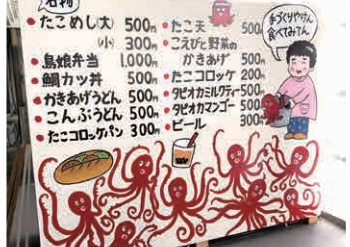 名物
たこめし(大) 500円
(小) 300円
島娘弁当 1,000円
鯛カツ丼 500円
かきあげうどん 500円
こんぶうどん 500円
たこコロッケパン 300円
たこ天 500円
こえびと野菜の
かきあげ 500円
たこコロッケ 200円
タピオカミルクティー 500円
タピオカマンゴー 500円
ビール 300円
手づくりやけん
食べてみてん。